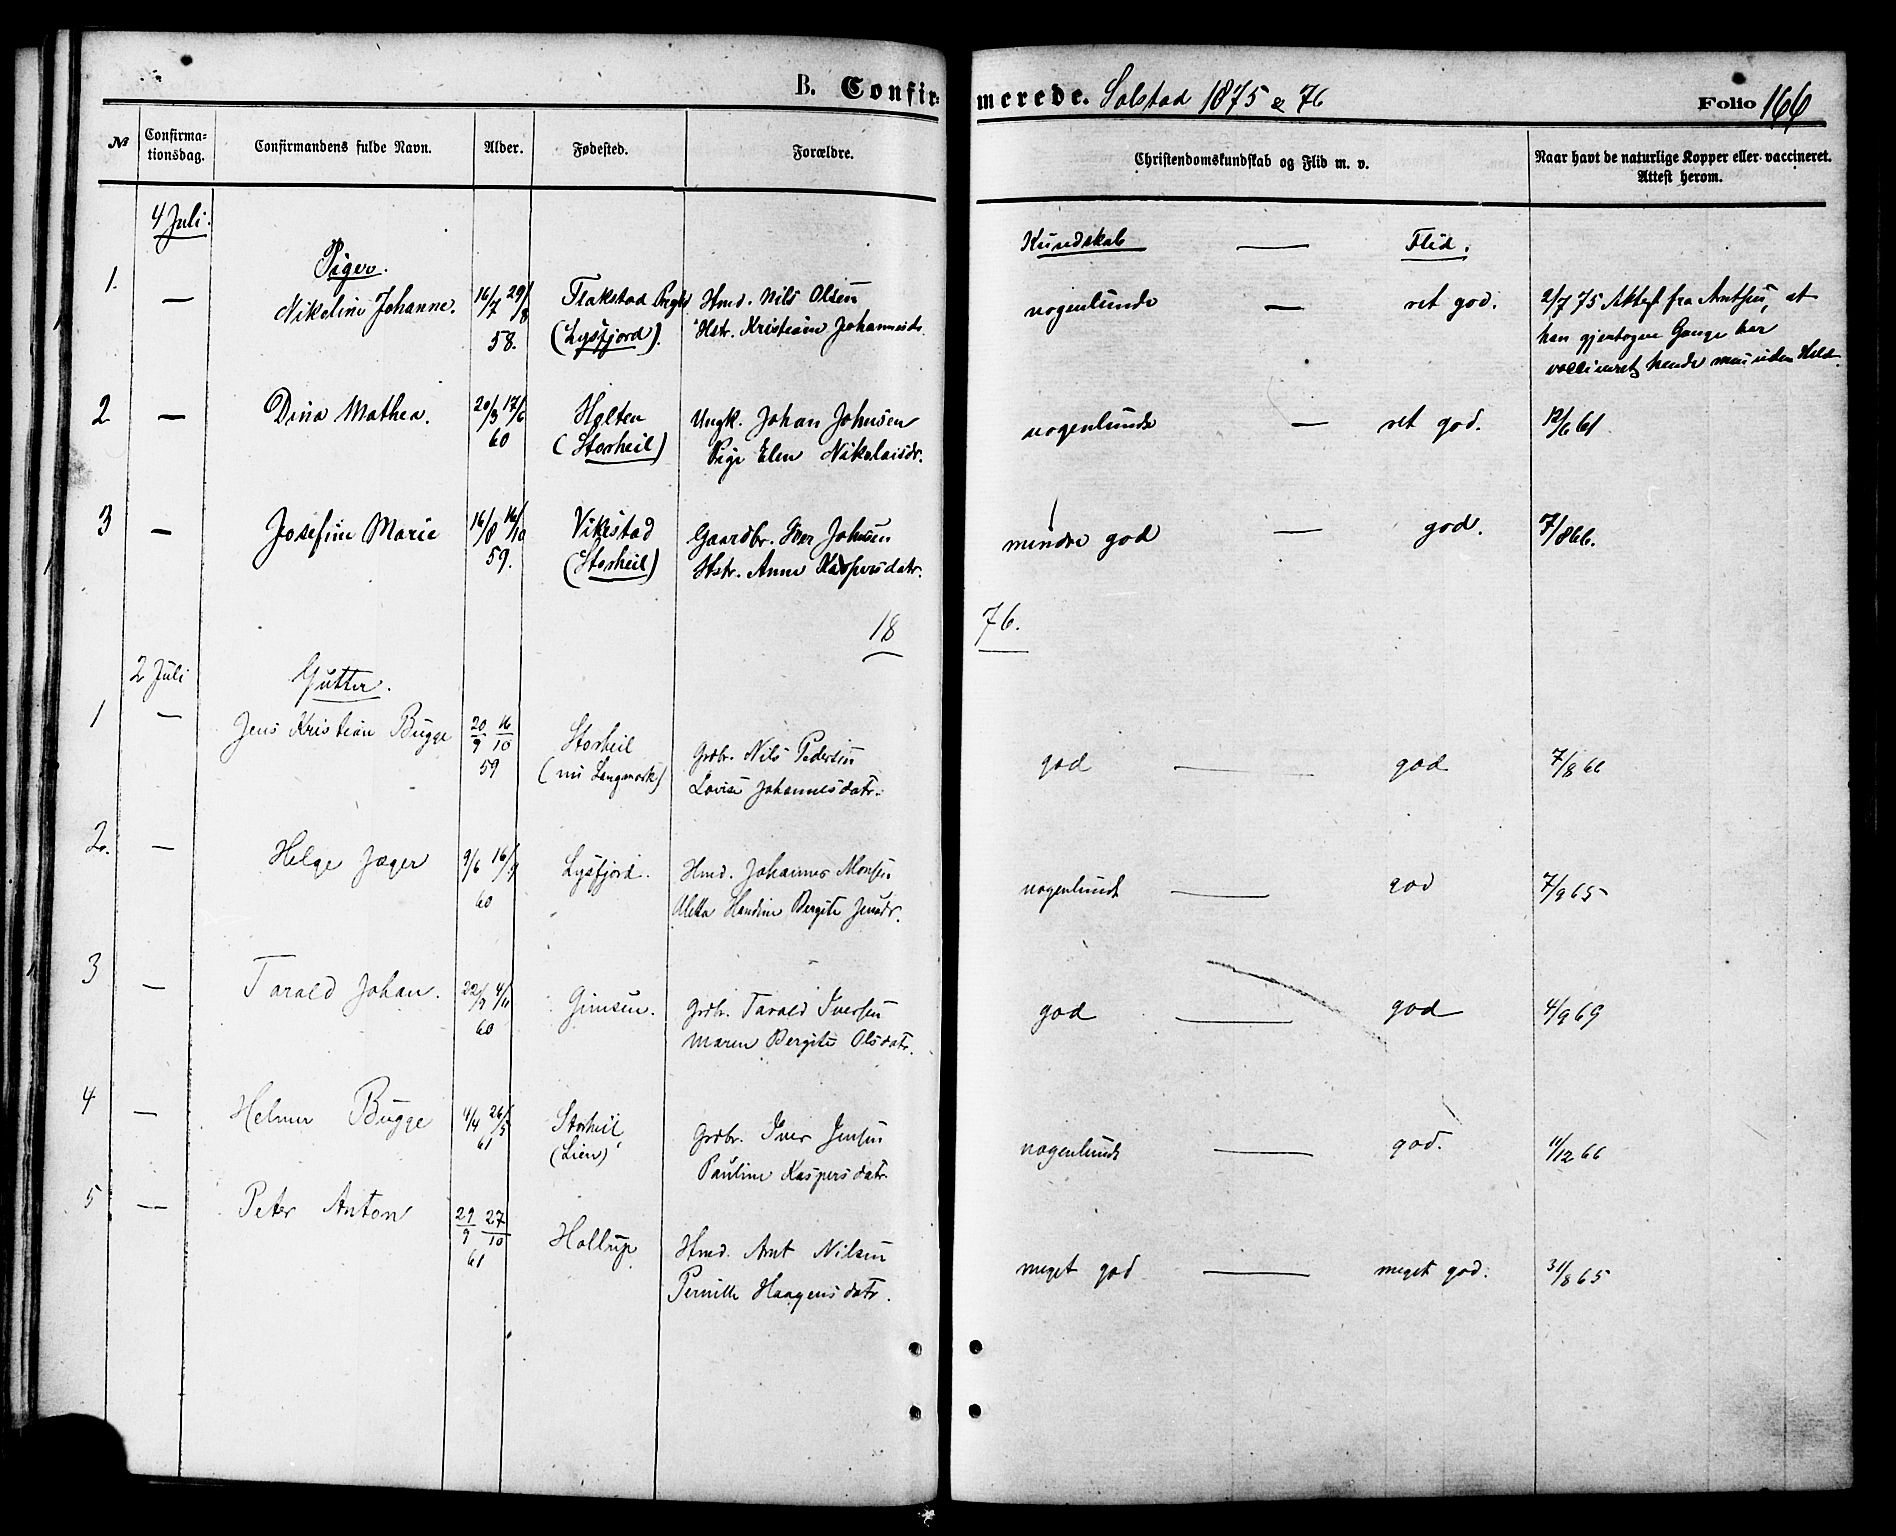 B. Confirmerede. Solstad 1875 & 76 Folio 166
No
Confirmationsdag.
Confirmandens fulde Navn.
Alder.
Fødested.
Forældre.
Christendomskundskab og Flid m. v.
Naar havt de naturlige Kopper eller vaccineret.
Attest herom.
4 Juli.
Piger.
Kundskab — Flid.
1. — Nikeline Johanne. 16/7 29/8 58. Flakstad (Lysfjord).
Hmd. Nils Olsen
Hstr. Kristiane Johannesdr.
nogenlunde — ret god.
2/7 75 Attest fra Arntsen, at
han gjentagne Gange har
vaccineret hende men uden Held.
2 — Dina Mathea. 20/3 17/6 60 Holten (Storheil)
Ungk. Johan Johnsen
Pige Elen Nikolaisdr.
nogenlunde — ret god. 12/6 61
3 — Josefine Marie 16/8 16/10 59. Vikestad (Storheil)
Gaardbr. Iver Johnsen
Hstr. Anne Kaspersdatr.
mindre god — god. 7/8 66.
18 76.
2 Juli
Gutter.
1 — Jens Kristian Bugge 20/9 16/10 59 Storheil (nu Langmork)
Grdbr. Nils Pedersen
Lovise Johannesdatr.
god — god 7/8 66
2. — Helge Jæger 9/6 16/9 60 Lysfjord.
Hmd. Johannes Monsen
Aletta Handine Bergite Jensdr.
nogenlunde — god 7/9 65
3 — Tarald Johan. 22/7 4/11 60 Gimsen.
Grdbr. Tarald Iversen
Maren Bergite Olsdatr.
god — god 4/9 69
4 — Helmer Bugge 4/4 26/5 61 Storheil (Lien)
Grdbr. Iver Jensen
Pauline Kaspersdatr
nogenlunde — god. 11/12 66
5 — Peter Anton 29/9 27/10 61 Hollup
Hmd. Arnt Nilsen
Pernille Haagensdatr.
meget god — meget god. 31/8 65